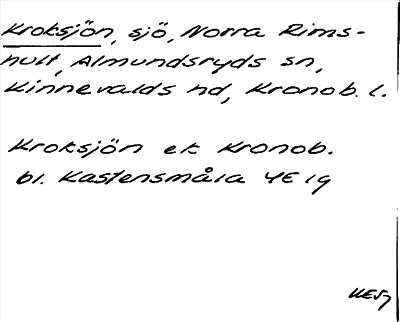 Kroksjön, sjö, Norra Rims-
hult, Almundsryds sn,
Kinnevalds hd, Kronob. l.
Kroksjön ek Kronob.
bl. Kastensmåla 4E 1g